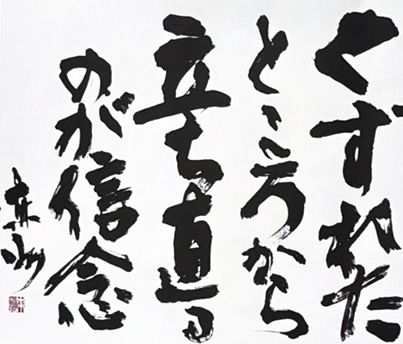 くずれた
ところから
立ち直る
のが信念